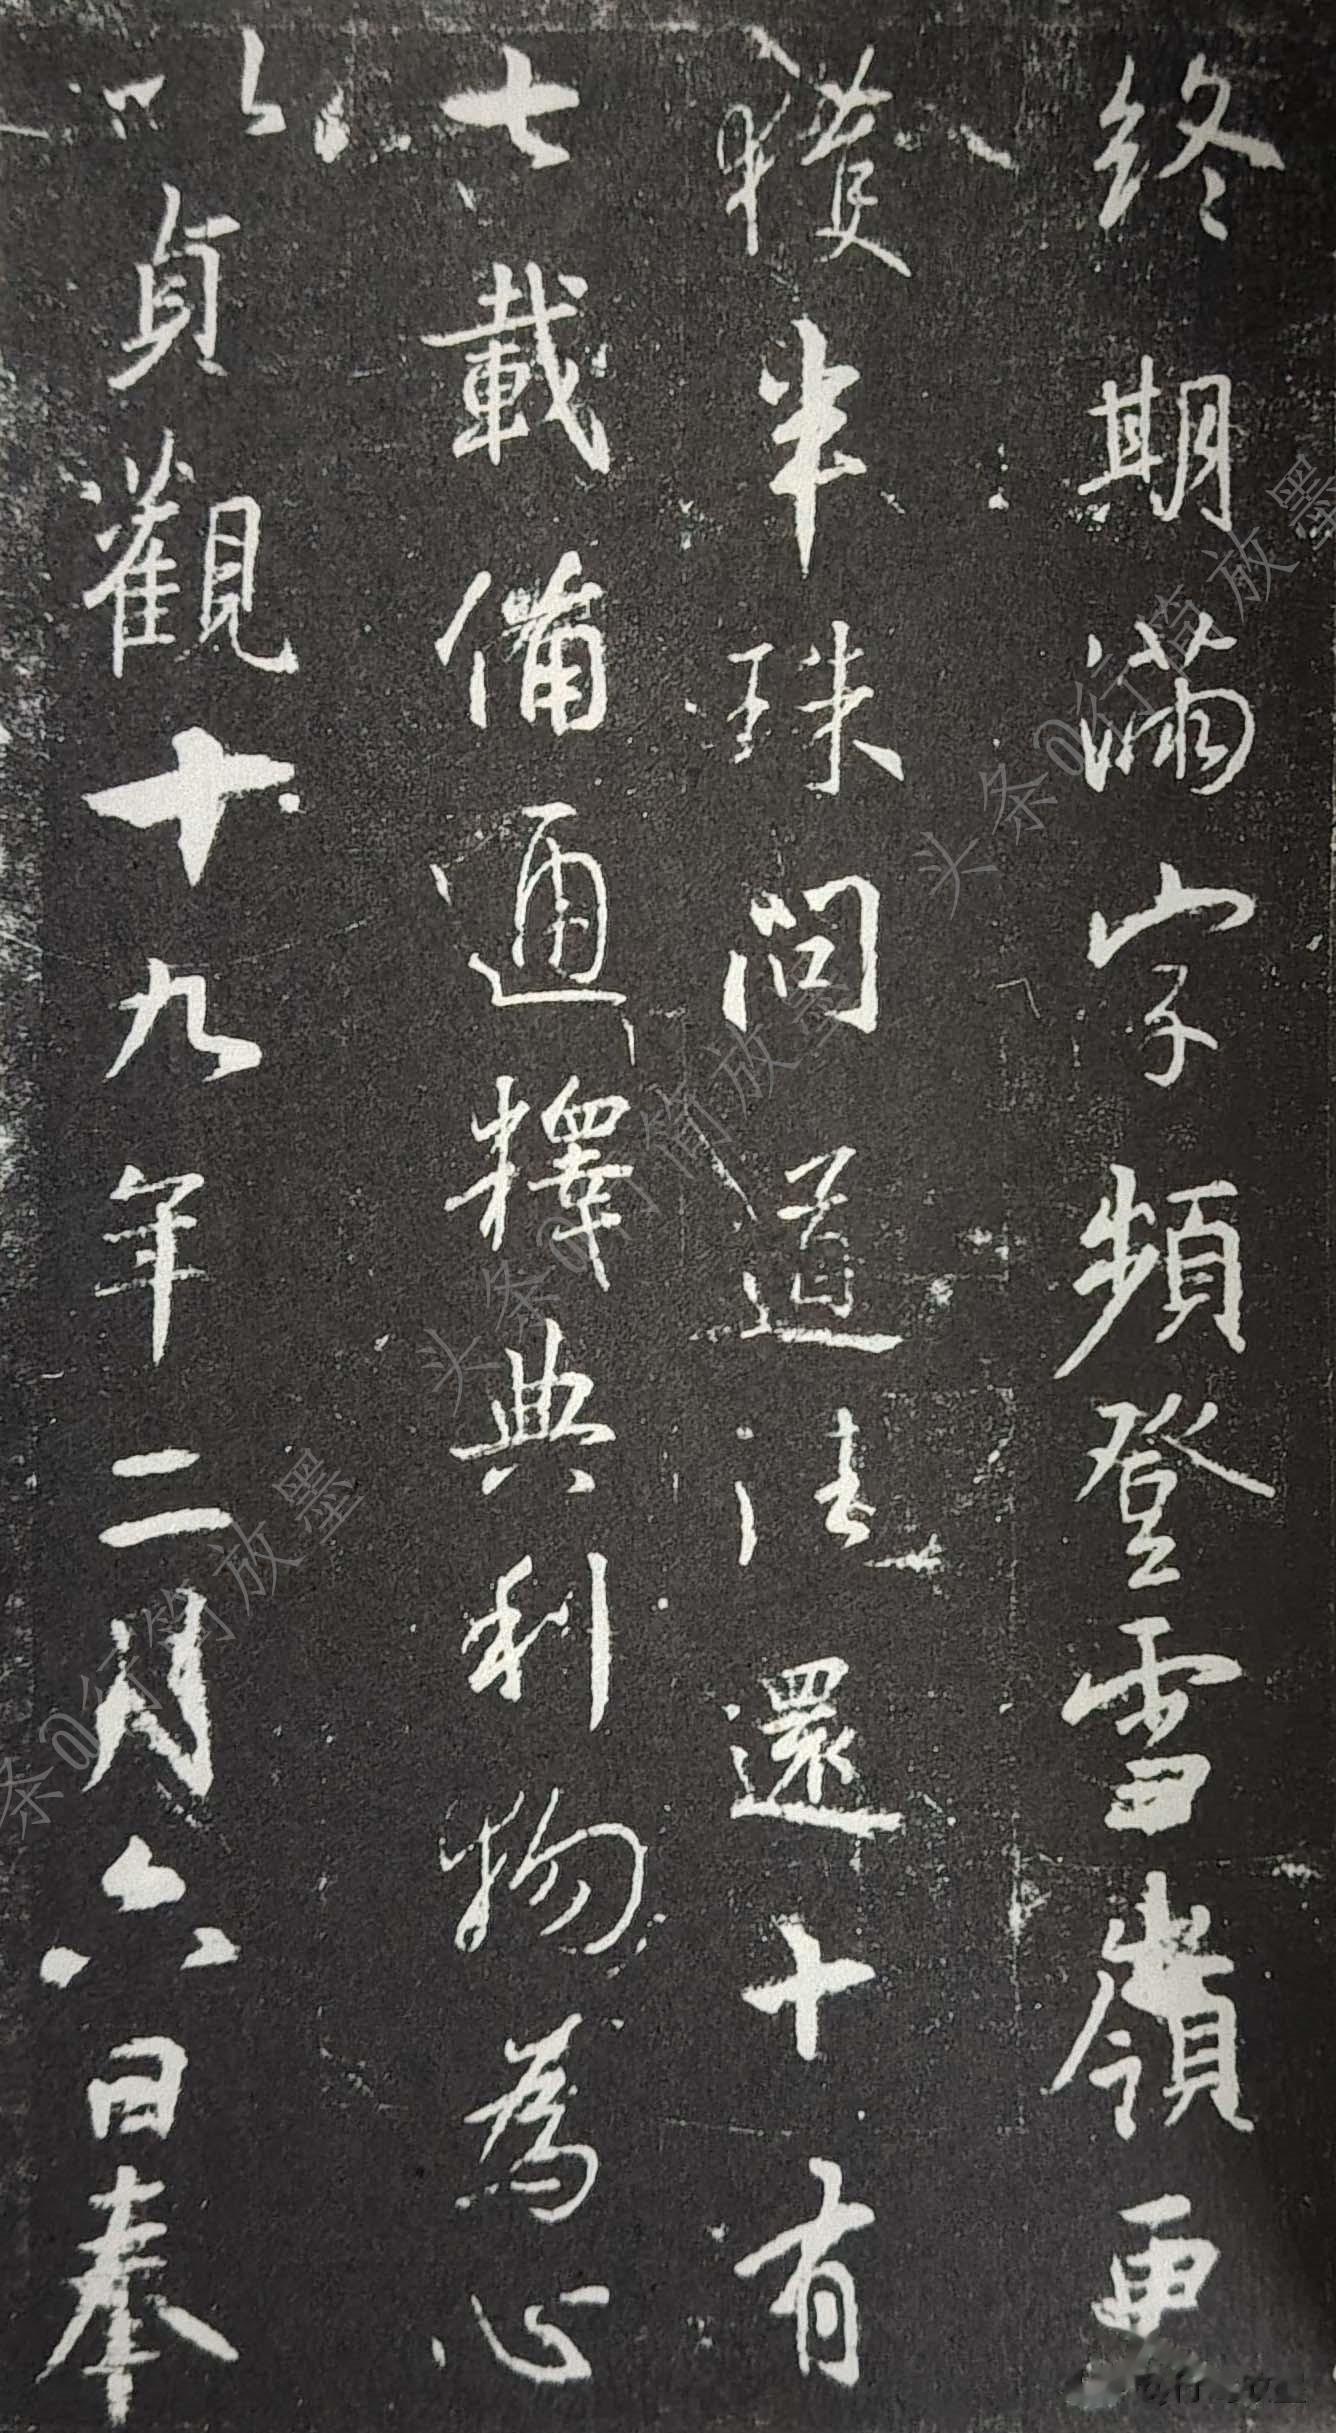 終期滿字頻登雪嶺更
獲半珠問道法還十有
七載備通釋典利物為心
以貞觀十九年二月六日奉
头条@行简放墨
头条@行简放墨
条@行简放墨